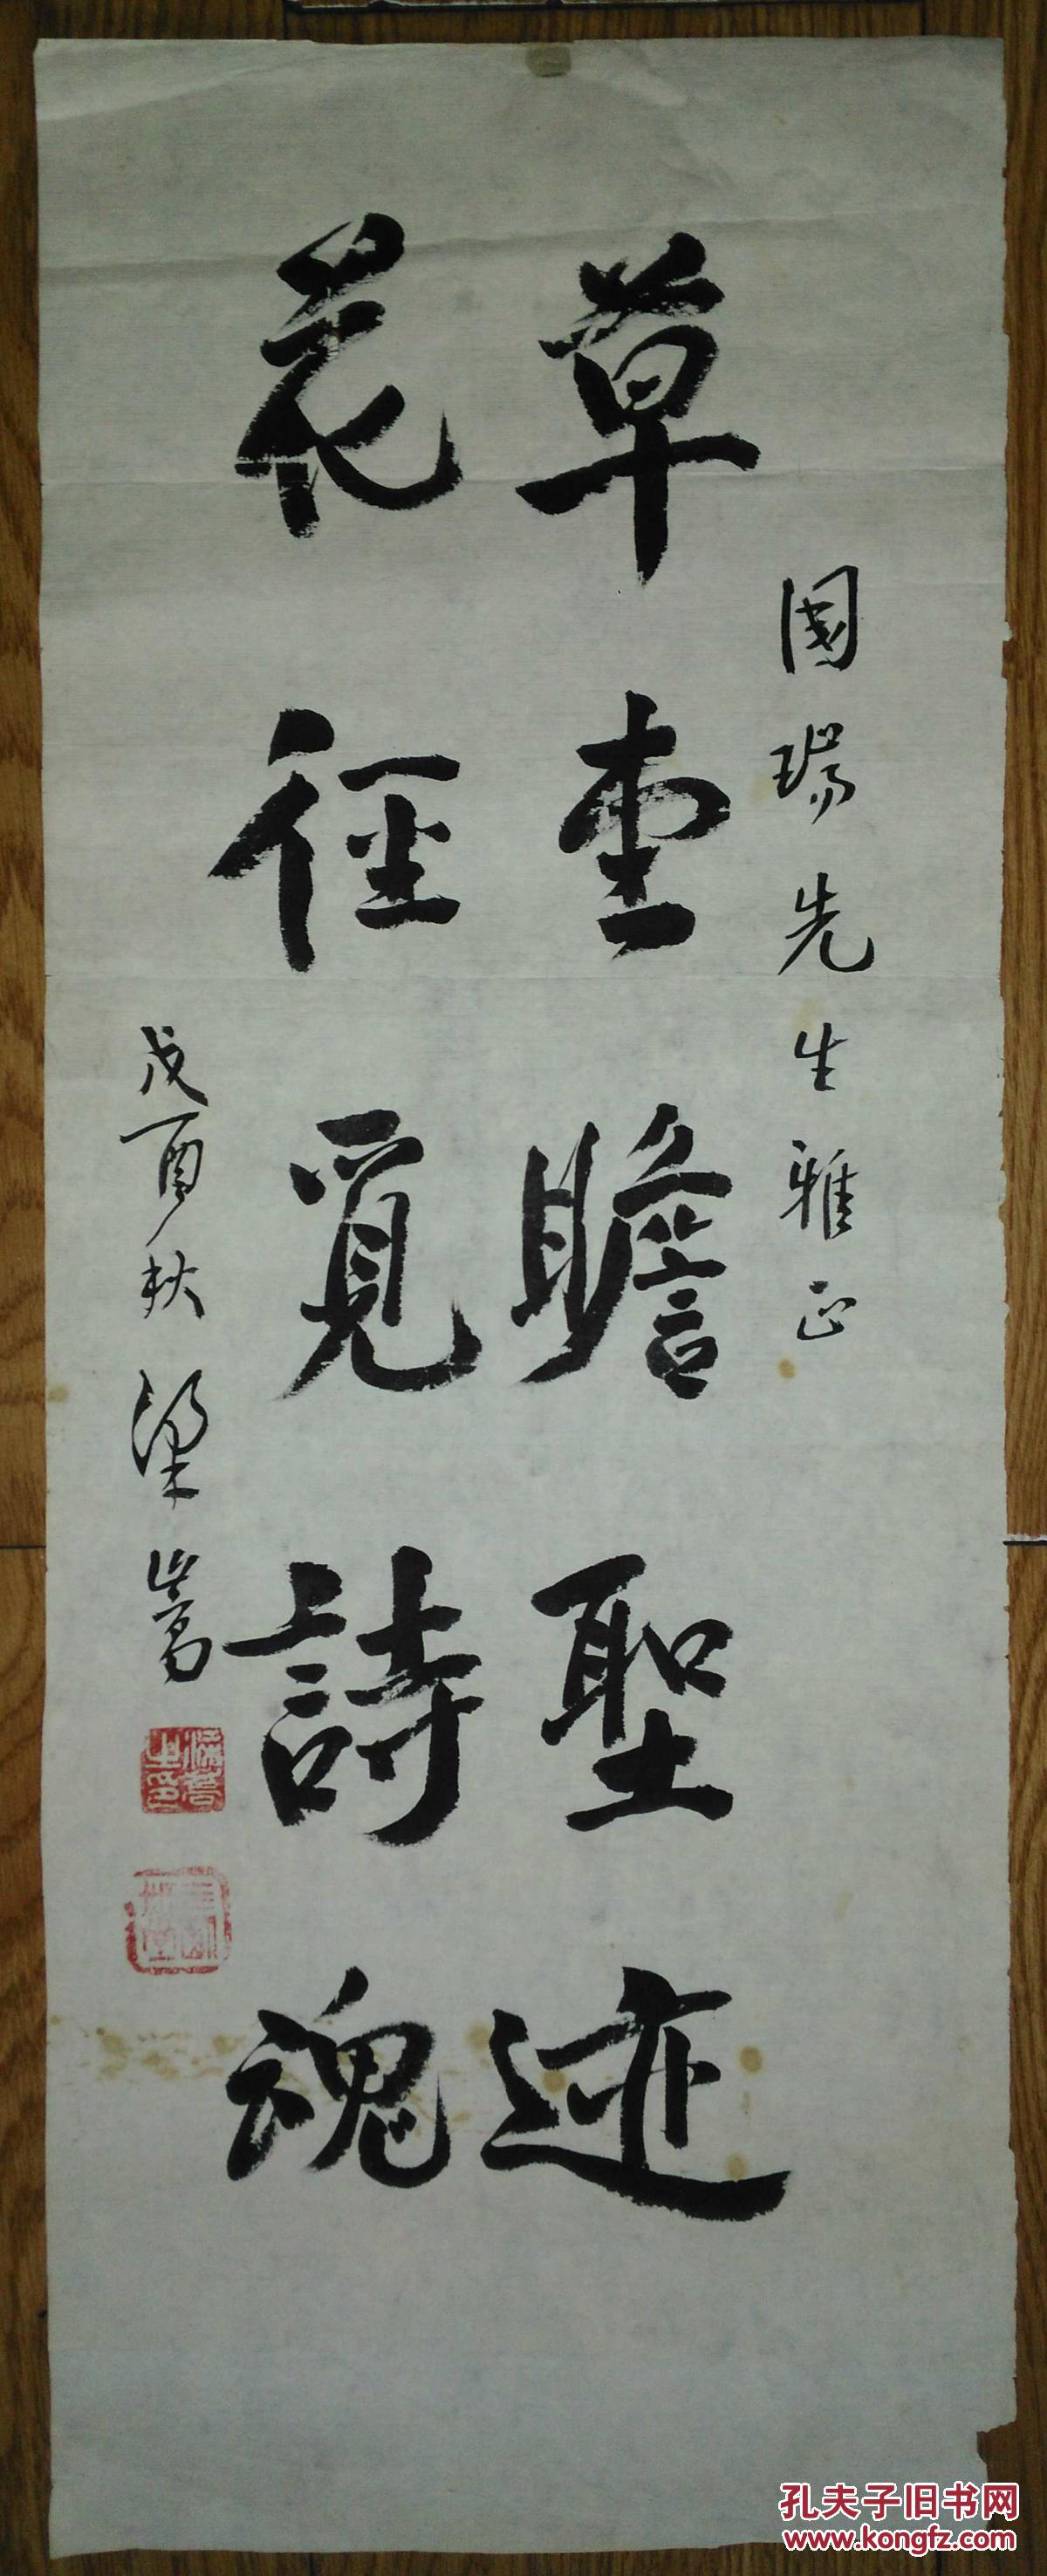 國瑞先生雅正
草堂瞻聖迹
花徑覓詩魂
戊酉秋 梁嵩
孔夫子旧书网
www.kongfz.com